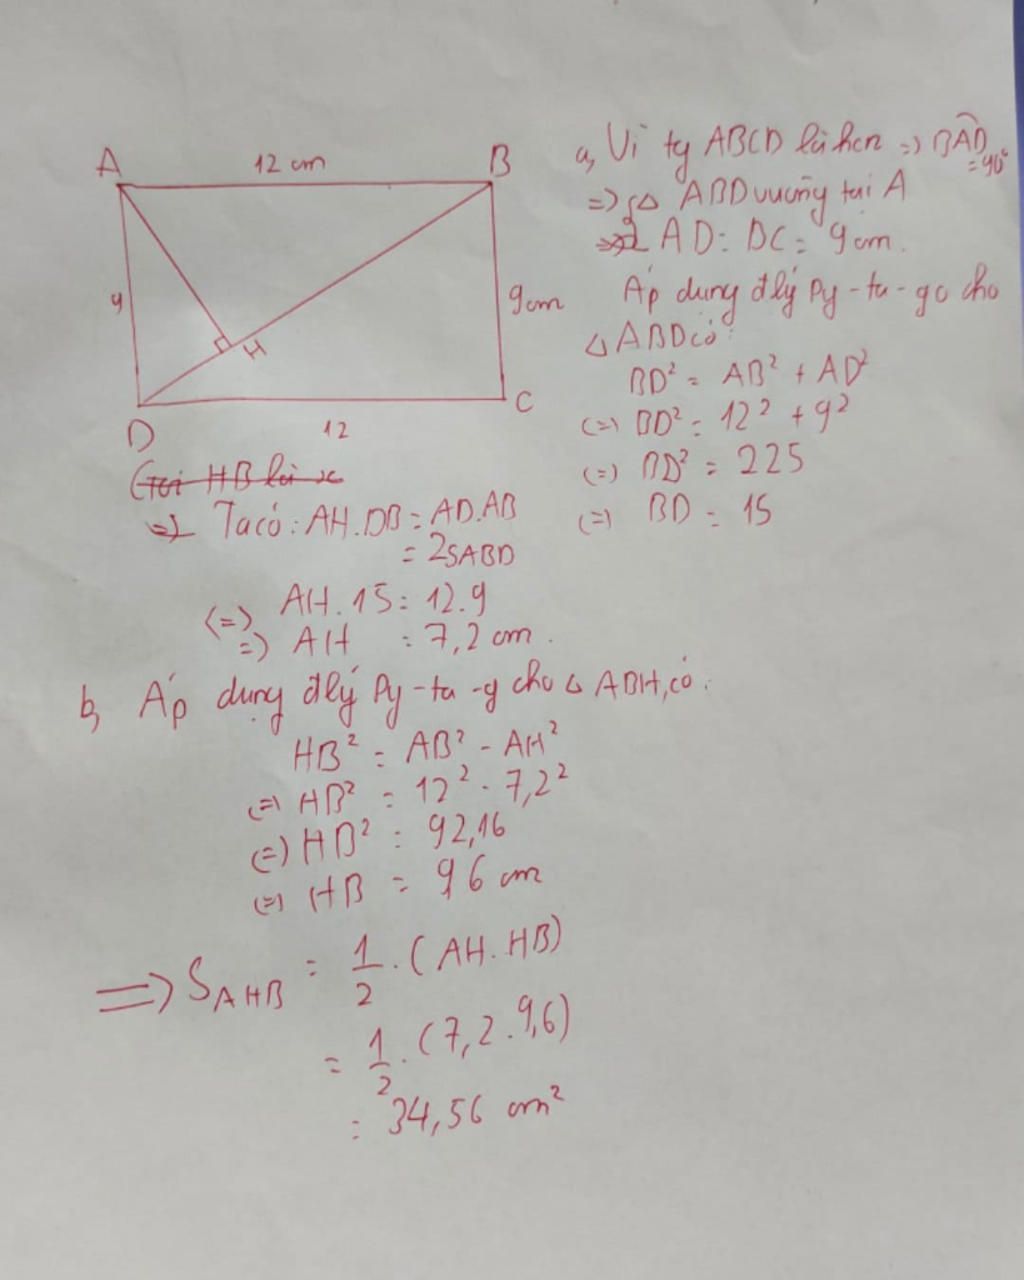 A
12 cm
B
9
9cm
H
D
12
C
a, Vì tg ABCD là hcn => BAD = 90°
=> Δ ABD vuông tại A
AD = BC = 9cm.
Áp dụng đlý Py-ta-go cho
Δ ABD có:
BD² = AB² + AD²
(=) BD² = 12² + 9²
(=) BD² = 225
(=) BD = 15
Gọi HB là x
=> Ta có: AH.DB = AD.AB
= 2SABD
(=>) AH.15 = 12.9
=> AH = 7,2 cm.
b, Áp dụng đlý Py-ta-g cho Δ ABH, có:
HB² = AB² - AH²
(=) HB² = 12² - 7,2²
(=) HB² = 92,16
(=) HB = 96 cm
=> SAHB = 1/2 . (AH.HB)
= 1/2 . (7,2.9,6)
= 34,56 cm²